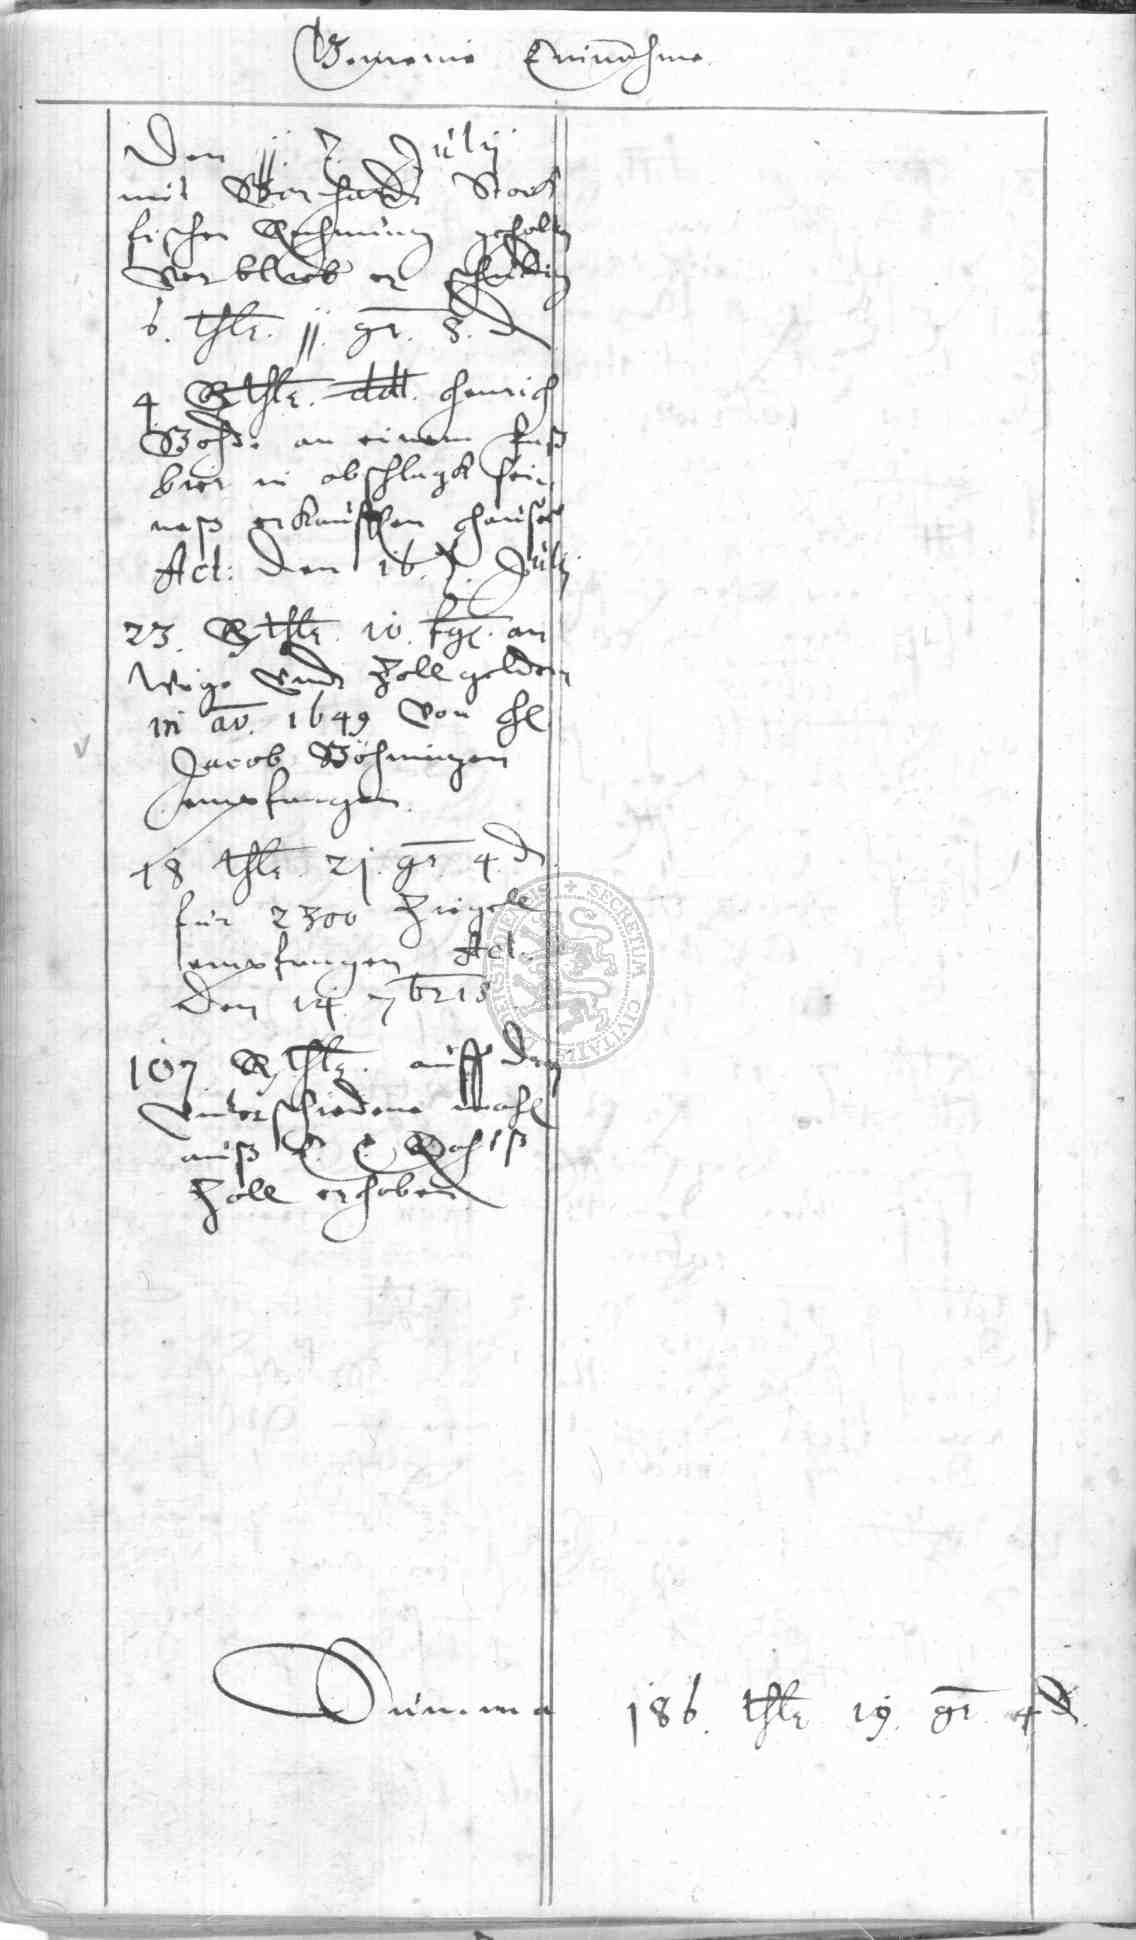 Gemeine Einnahme
Den jj. 7. Julij
mit Gerhardt Stock
fischer Rechnung gehalten
verbleibt er schuldig
6. thlr. jj. gr. 8. d
4 Rthlr. ddt. Henrich
an einem Faß
bier in abschlagk sei
neß erkaufften Hauses
Act: den 16. Julij
23. Rthlr. 10. an
Wege undt Zoll geldern
in ao. 1649 von H
Jacob Böhningen
empfangen
18 thlr. 2j. gr. 4. d
für 2300 Ziegell
empfangen Act.
Den 14. 7bris
107 Rthlr. auff drey
unterschiedene mahl
auß E. E. Rahtß
Zoll erhoben
Summa 186. thlr 19. gr. 4 d.
SECRETUM CIVITATIS